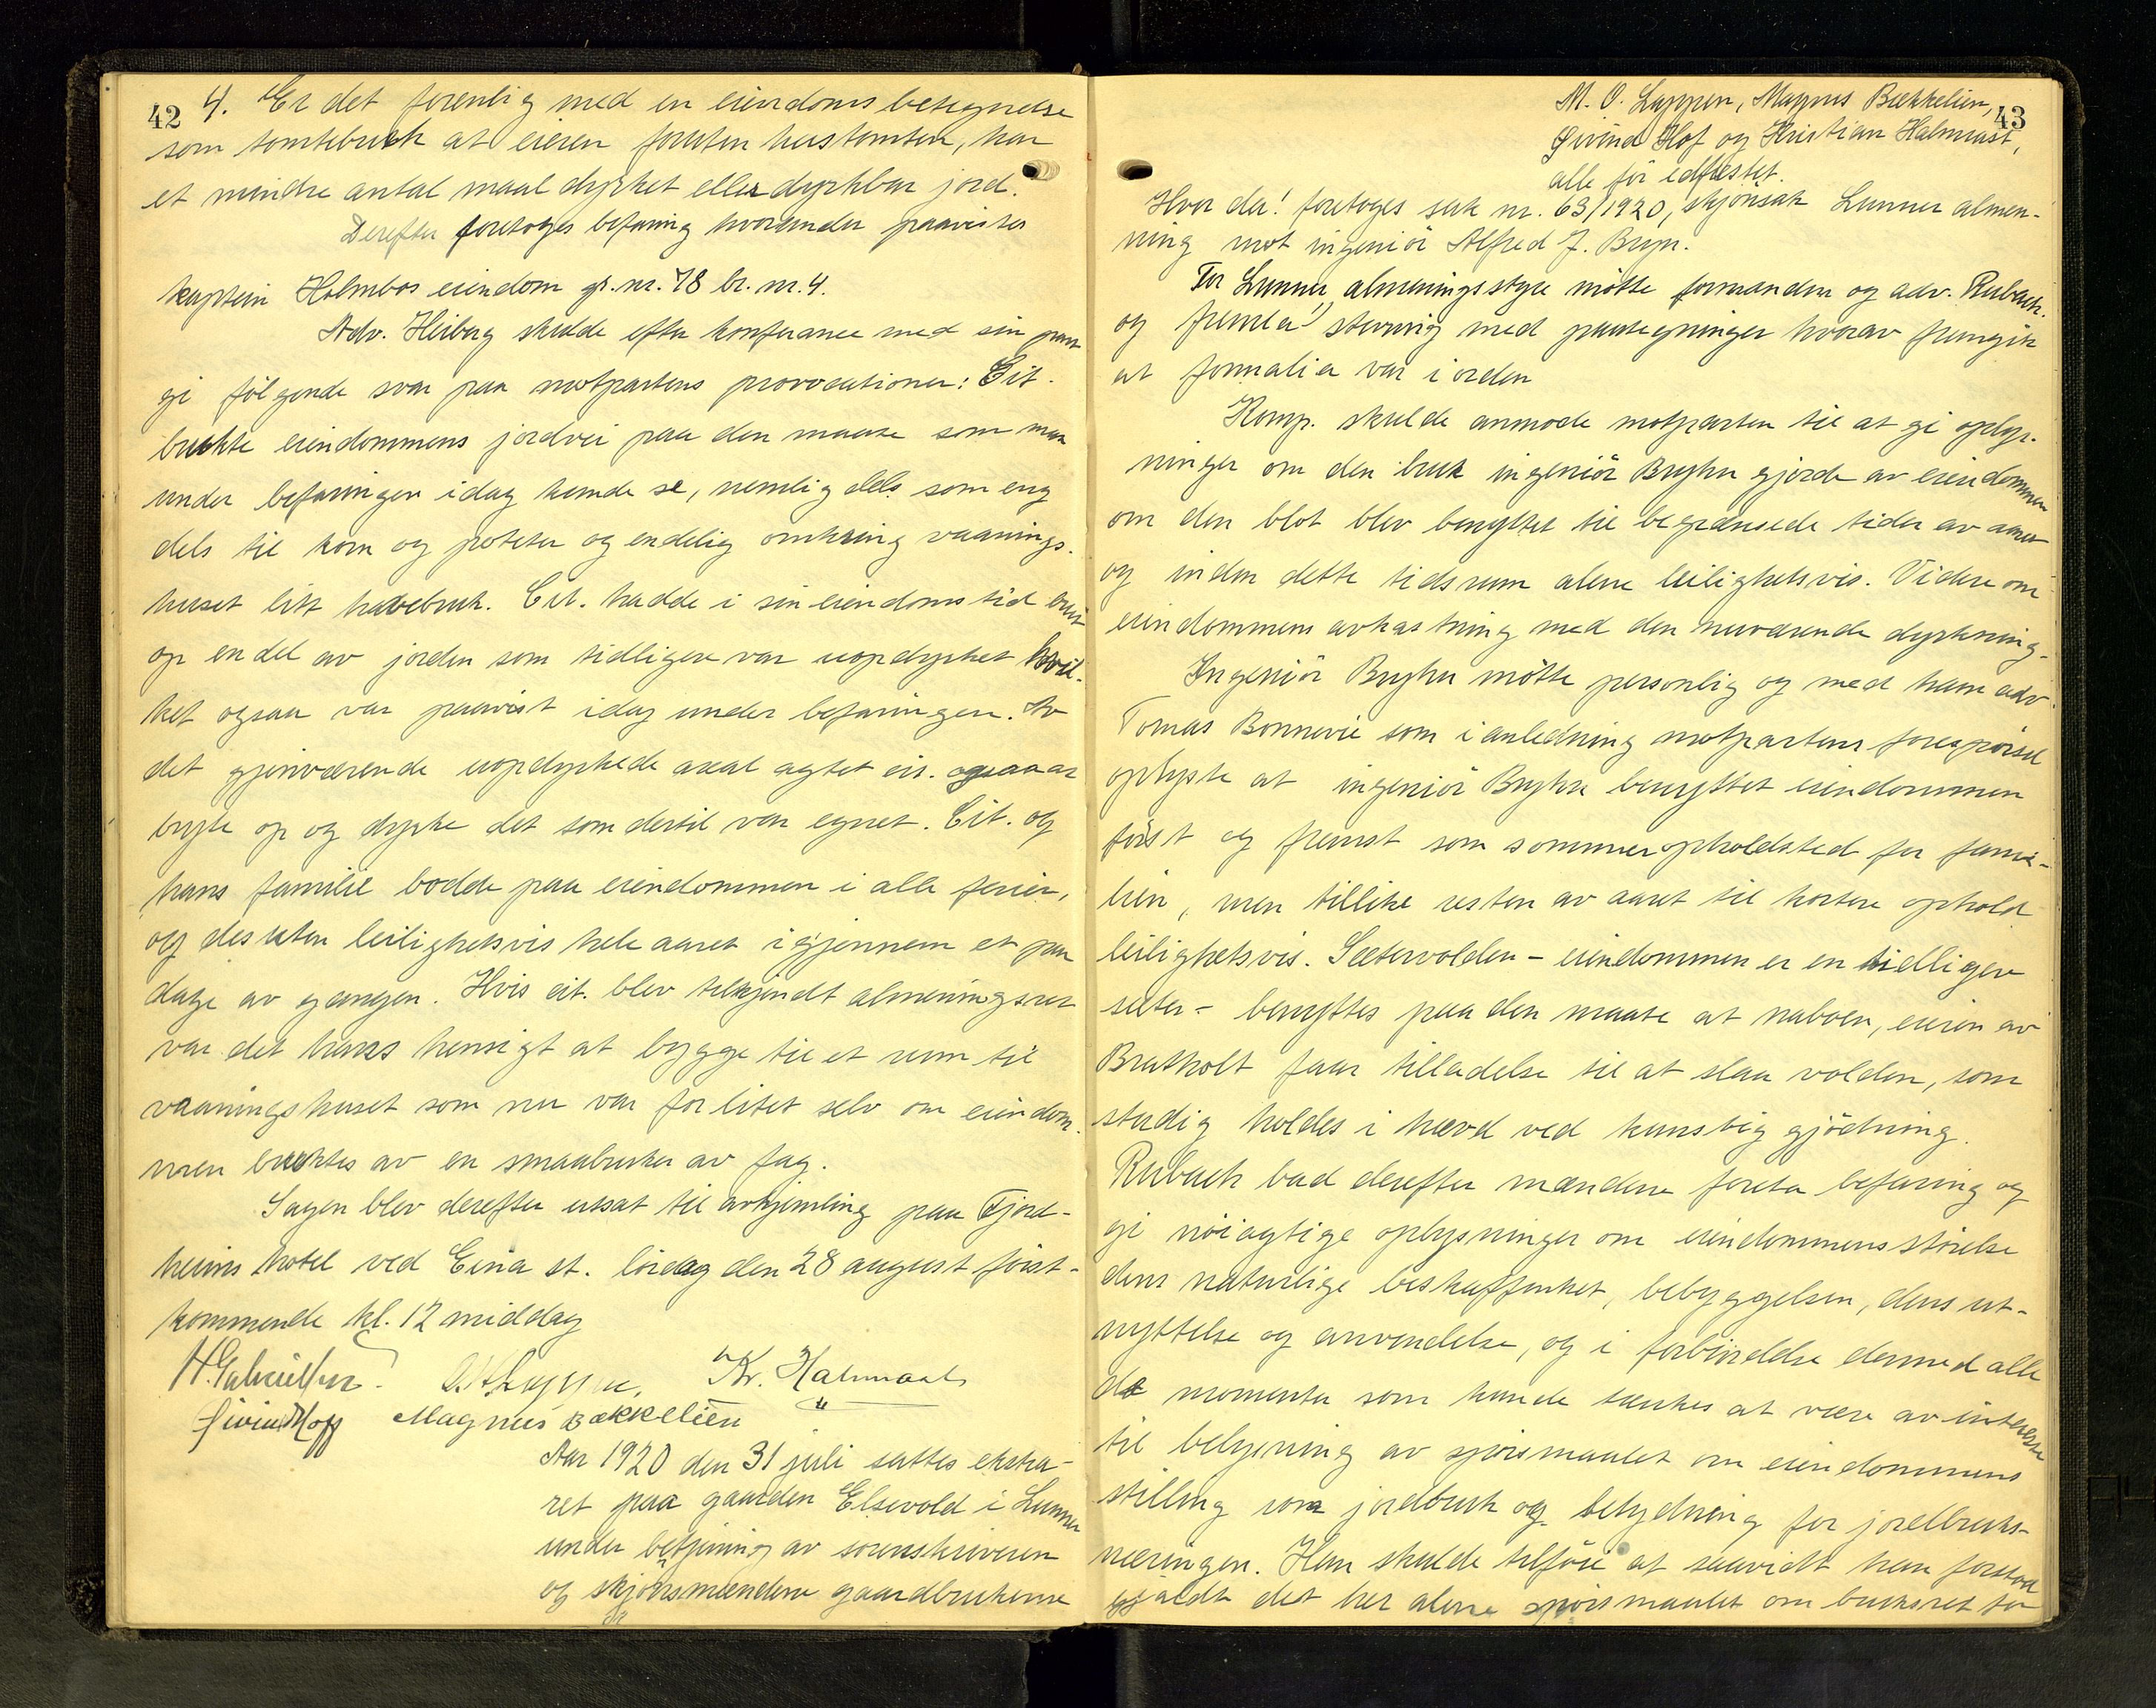 42
4. Er det forenlig med en eiendoms betegnelse
som tomtebruk at eieren foruten hustomten, har
et mindre antal maal dyrket eller dyrkbar jord.
Derefter foretoges befaring hvorunder paavistes
kaptein Holmbos eiendom gr. nr. 78 br. nr. 4.
Adv. Heiberg skulde efter konferance med sin part
gi følgende svar paa motpartens provocationer: Cit.
brukte eiendommens jordvei paa den maate som man
under befaringen idag kunde se, nemlig dels som eng
dels til korn og poteter og endelig omkring vaanings-
huset litt havebruk. Cit. hadde i sin eiendomstid brutt
op en del av jorden som tidligere var uopdyrket hvil-
ket ogsaa var paavist idag under befaringen. Av
det gjenværende uopdyrkede areal agtet cit. ogsaa at
bryte op og dyrke det som dertil var egnet. Cit. og
hans familie bodde paa eiendommen i alle ferier,
og desuten leilighetsvis hele aaret igjennem et par
dage av gangen. Hvis cit. blev tilkjendt almeningsret
var det hans hensigt at bygge til et rum til
vaaningshuset som nu var for litet selv om eiendom-
men bruktes av en smaabruker av fag.
Sagen blev derefter utsat til avhjemling paa Fjord-
heims hotel ved Eina st. lördag den 28 august först-
kommende kl. 12 middag
H. Gabrielsen. O. H. Lappen. Kr. Halmrast
Eivind Hoff Magnus Bækkelien
Aar 1920 den 31 juli sattes ekstra-
ret paa gaarden Elsevold i Lunner
under betjening av sorenskriveren
og skjönsmændene gaardbrukerne
43
M. O. Lappen, Magnus Bækkelien,
Eivind Hof og Kristian Halmrast,
alle før edfæstet.
Hvor da! foretoges sak nr. 63/1920, skjönsak Lunner almen-
ning mot ingeniör Alfred J. Bryn.
For Lunner almeningsstyre mötte formanden og adv. Rubach.
og fremla! stevning med paategninger hvorav fremgik
at formalia var i orden
Komp. skulde anmode motparten til at gi oplys-
ninger om den bruk ingeniör Bryhn gjorde av eiendommen
om den blot blev benyttet til begrænsede tider av aaret
og inden dette tidsrum alene leilighetsvis. Videre om
eiendommens avkastning med den nuværende dyrkning.
Ingeniör Bryhn mötte personlig og med ham adv.
Tomas Bonnevie som i anledning motpartens forespörsel
oplyste at ingeniör Bryhn benyttet eiendommen
först og fremst som sommeropholdsted for fami-
lien, men tillike resten av aaret til kortere ophold
leilighetsvis. Sætervolden - eiendommen er en tidligere
sæter - benyttes paa den maate at naboen, eieren av
Bratholt faar tilladelse til at slaa volden, som
stadig holdes i hævd ved kunstig gjödning.
Rubach bad derefter mændene foreta befaring og
gi nöiagtige oplysninger om eiendommens störelse
dens naturlige beskaffenhet, bebyggelsen, dens ut-
nyttelse og anvendelse, og i forbindelse dermed alle
de momenter som kunde tænkes at være av interesse
til belysning av spörsmaalet om eiendommens
stilling som jordbruk og betydning for jordbruks-
næringen. Han skulde tilföie at saavidt han forstod
gjaldt det her alene spörsmaalet om bruksret for